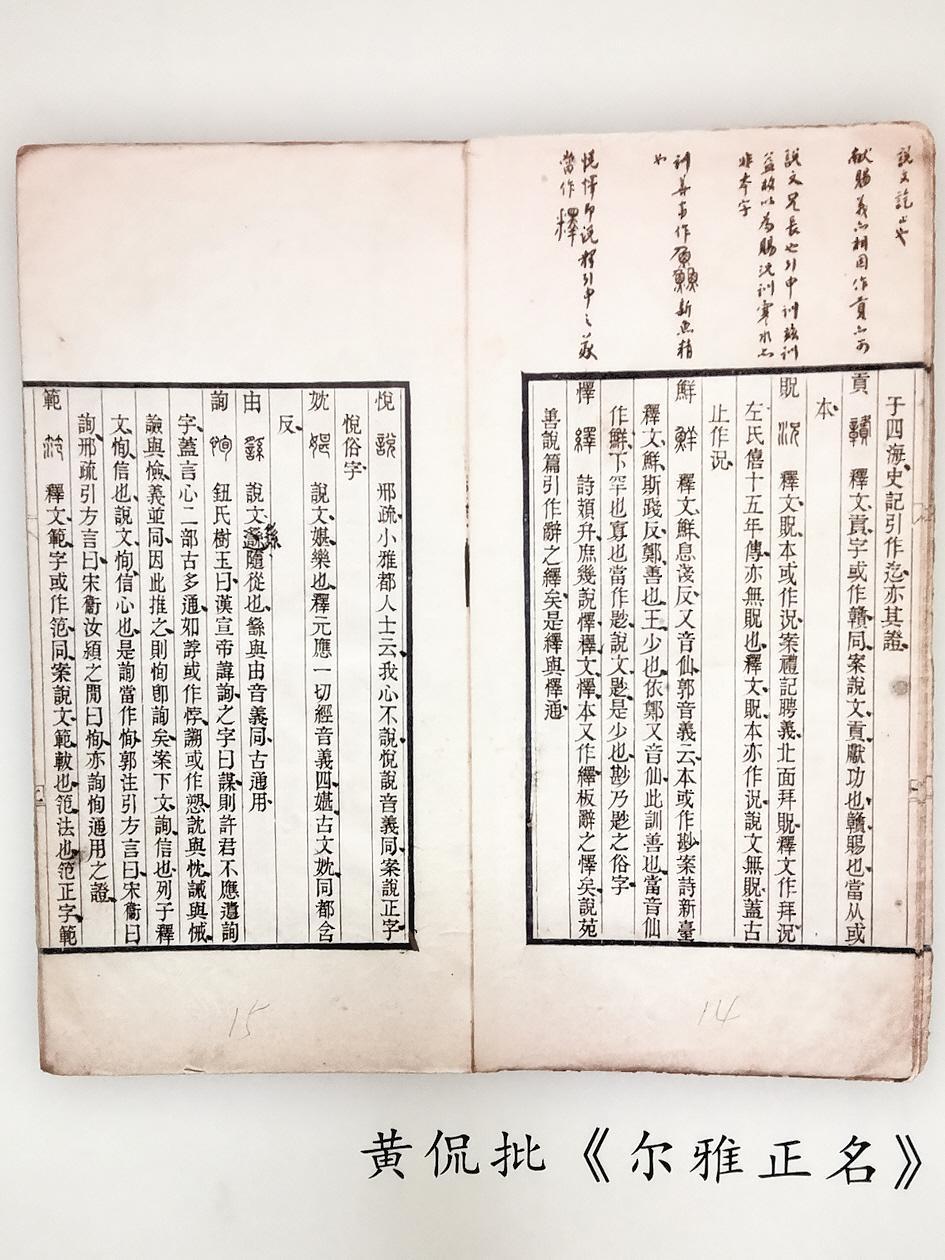 説文訖止也
献賜義亦相因作貢亦可
説文兄長也引申訓兹訓
益故以為賜況訓寒水亦
非本字
訓善者作鱻新魚精
也
悅懌即說釋引申之義
當作釋
于四海史記引作迄亦其證
貢 釋文貢字或作贛同案說文貢獻功也贛賜也當从或
本
貺 況 釋文貺本或作況案禮記聘義北面拜貺釋文作拜況
左氏僖十五年傳亦無貺也釋文貺本亦作況說文無貺蓋古
止作況
鮮 鮮 釋文鮮息淺反又音仙郭音義云本或作尠案詩新臺
釋文鮮斯踐反鄭善也王少也依鄭又音仙此訓善也當音仙
作鮮下罕也寡也當作尟說文尟是少也尠乃尟之俗字
懌 繹 詩頍升庶幾說懌釋文懌本又作繹板辭之懌矣說苑
善說篇引作辭之繹矣是繹與懌通
悅 說 邢疏小雅都人士云我心不說悅說音義同案說正字
悅俗字
妉 媅 說文媅樂也釋元應一切經音義四媅古文妉同都含
反
由 繇 說文䌛隨從也繇與由音義同古通用
䌛
詢 恂 鈕氏樹玉曰漢宣帝諱詢之字曰謀則許君不應遺詢
字蓋言心二部古多通如誖或作悖謝或作愬訦與忱諴與慽
譣與憸義並同因此推之則恂即詢矣案下文詢信也列子釋
文恂信也說文恂信心也是詢當作恂郭注引方言曰宋衞曰
詢邢疏引方言曰宋衞汝潁之閒曰恂亦詢恂通用之證
範 笵 釋文範字或作笵同案說文範軷也笵法也笵正字範
15
14
黄侃批《尔雅正名》